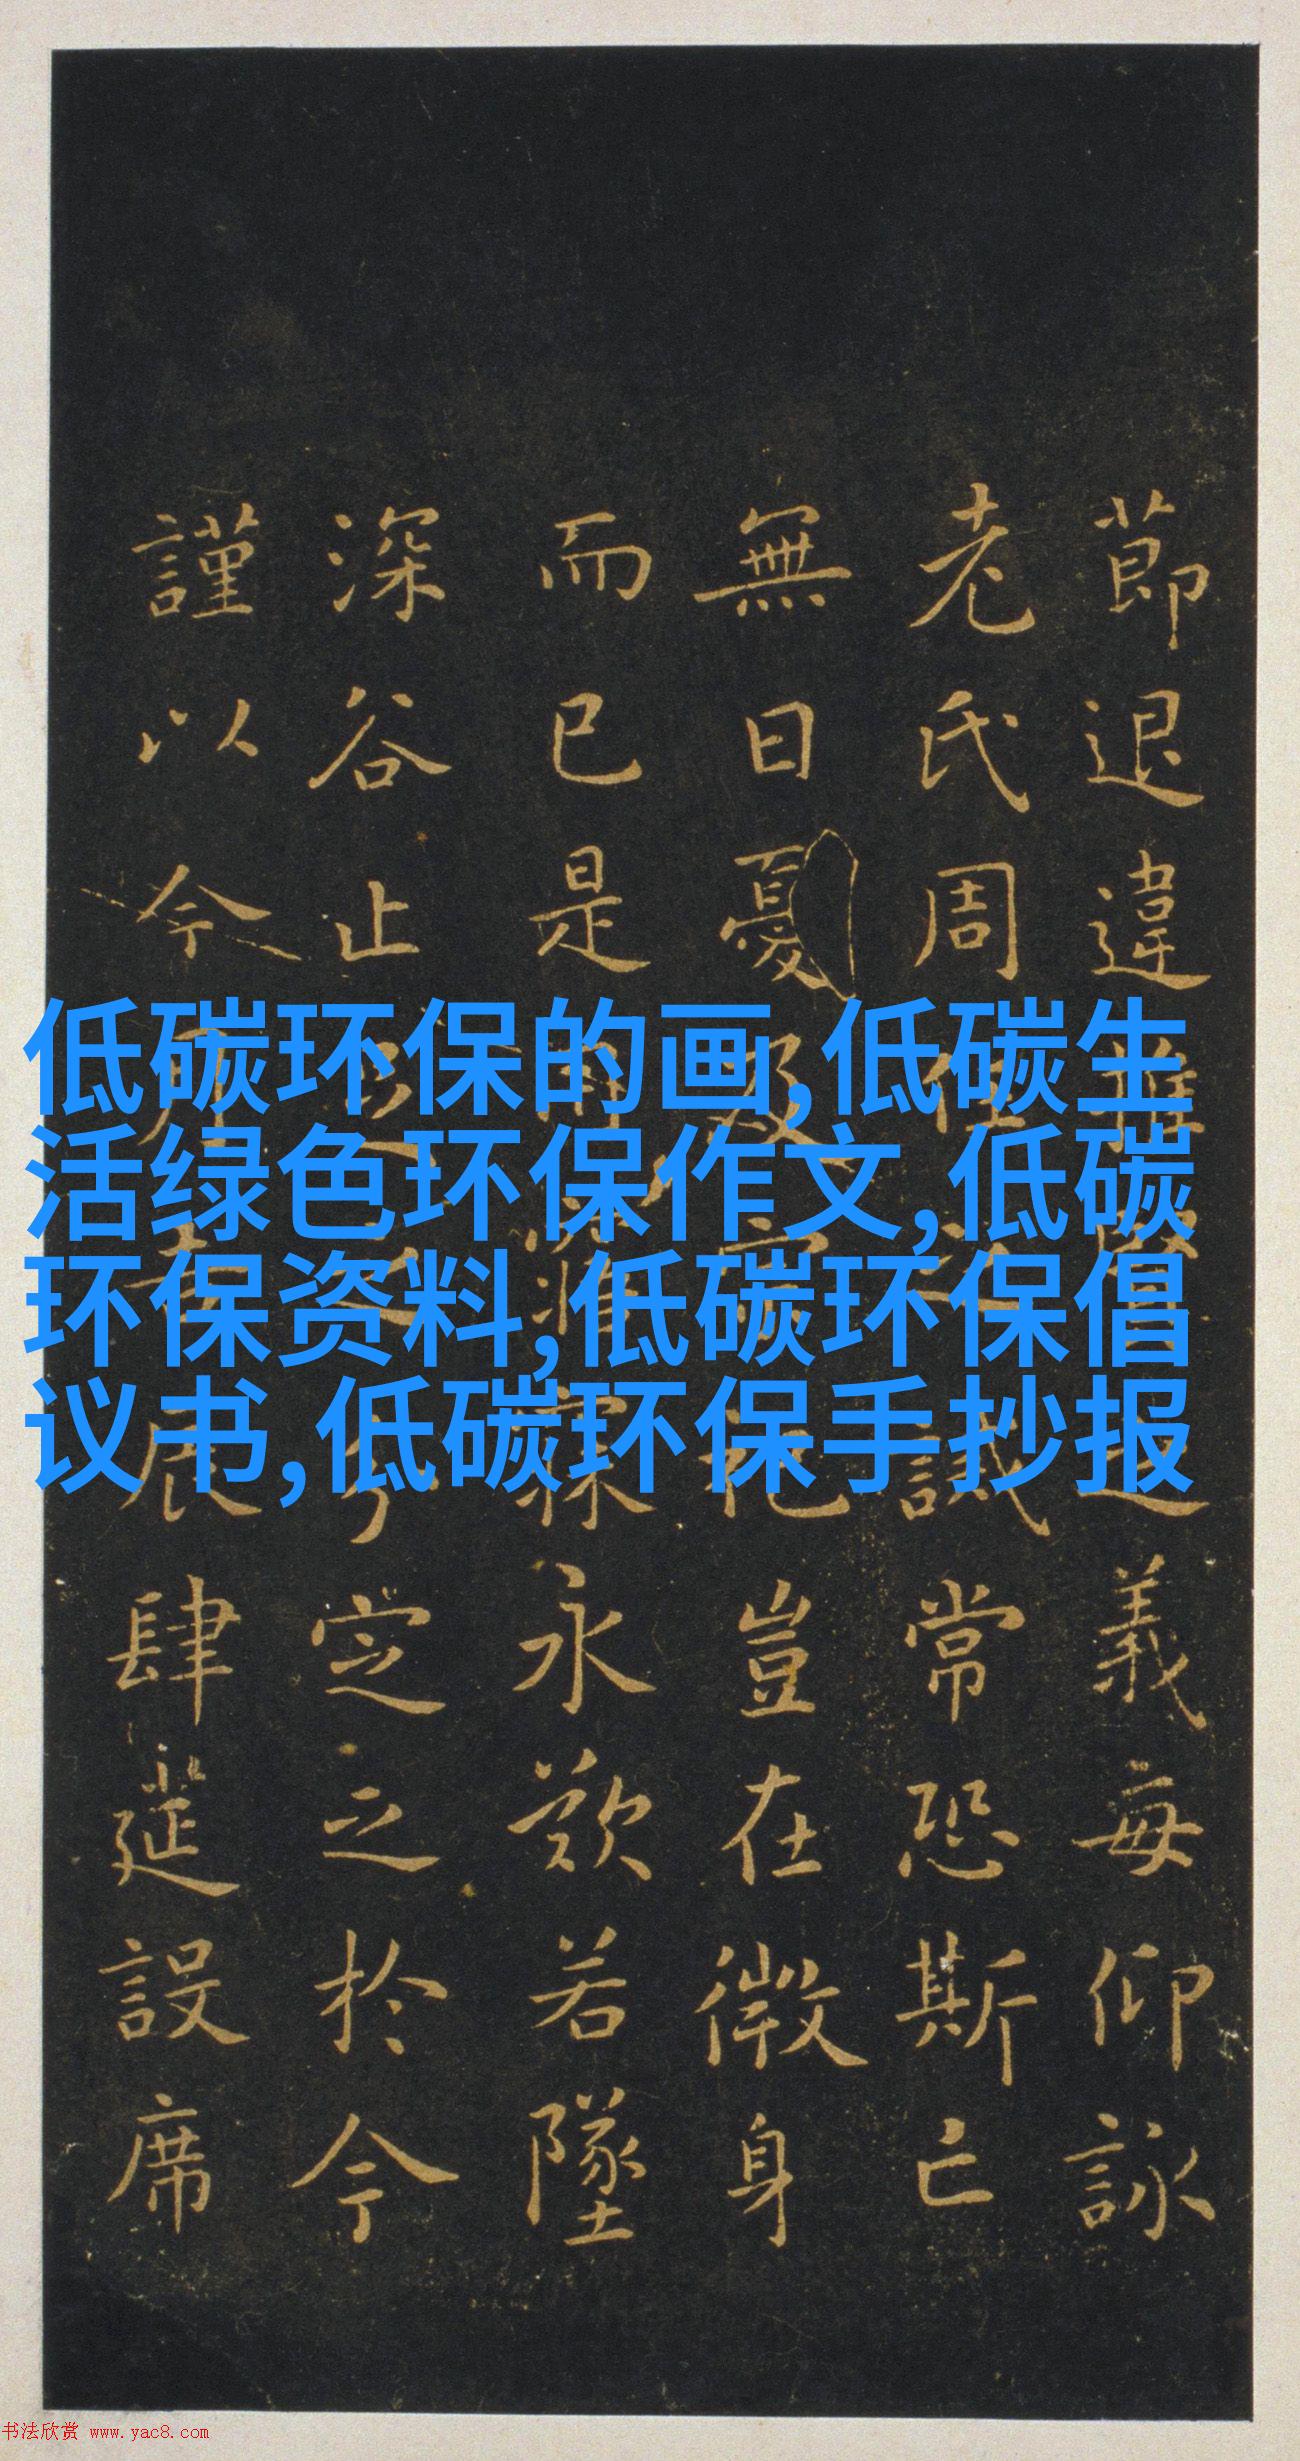 節退違推賢之義每仰詠
老氏周任之誡常恐斯亡
無日憂及宗祀豈在微身
而已是用寤寐永歎若墜
深谷止足之分定之於今
謹以今月吉辰肆筵設席
低碳环保的画,低碳生
活绿色环保作文,低碳
环保资料,低碳环保倡
议书,低碳环保手抄报
书法欣赏 www.yac8.com